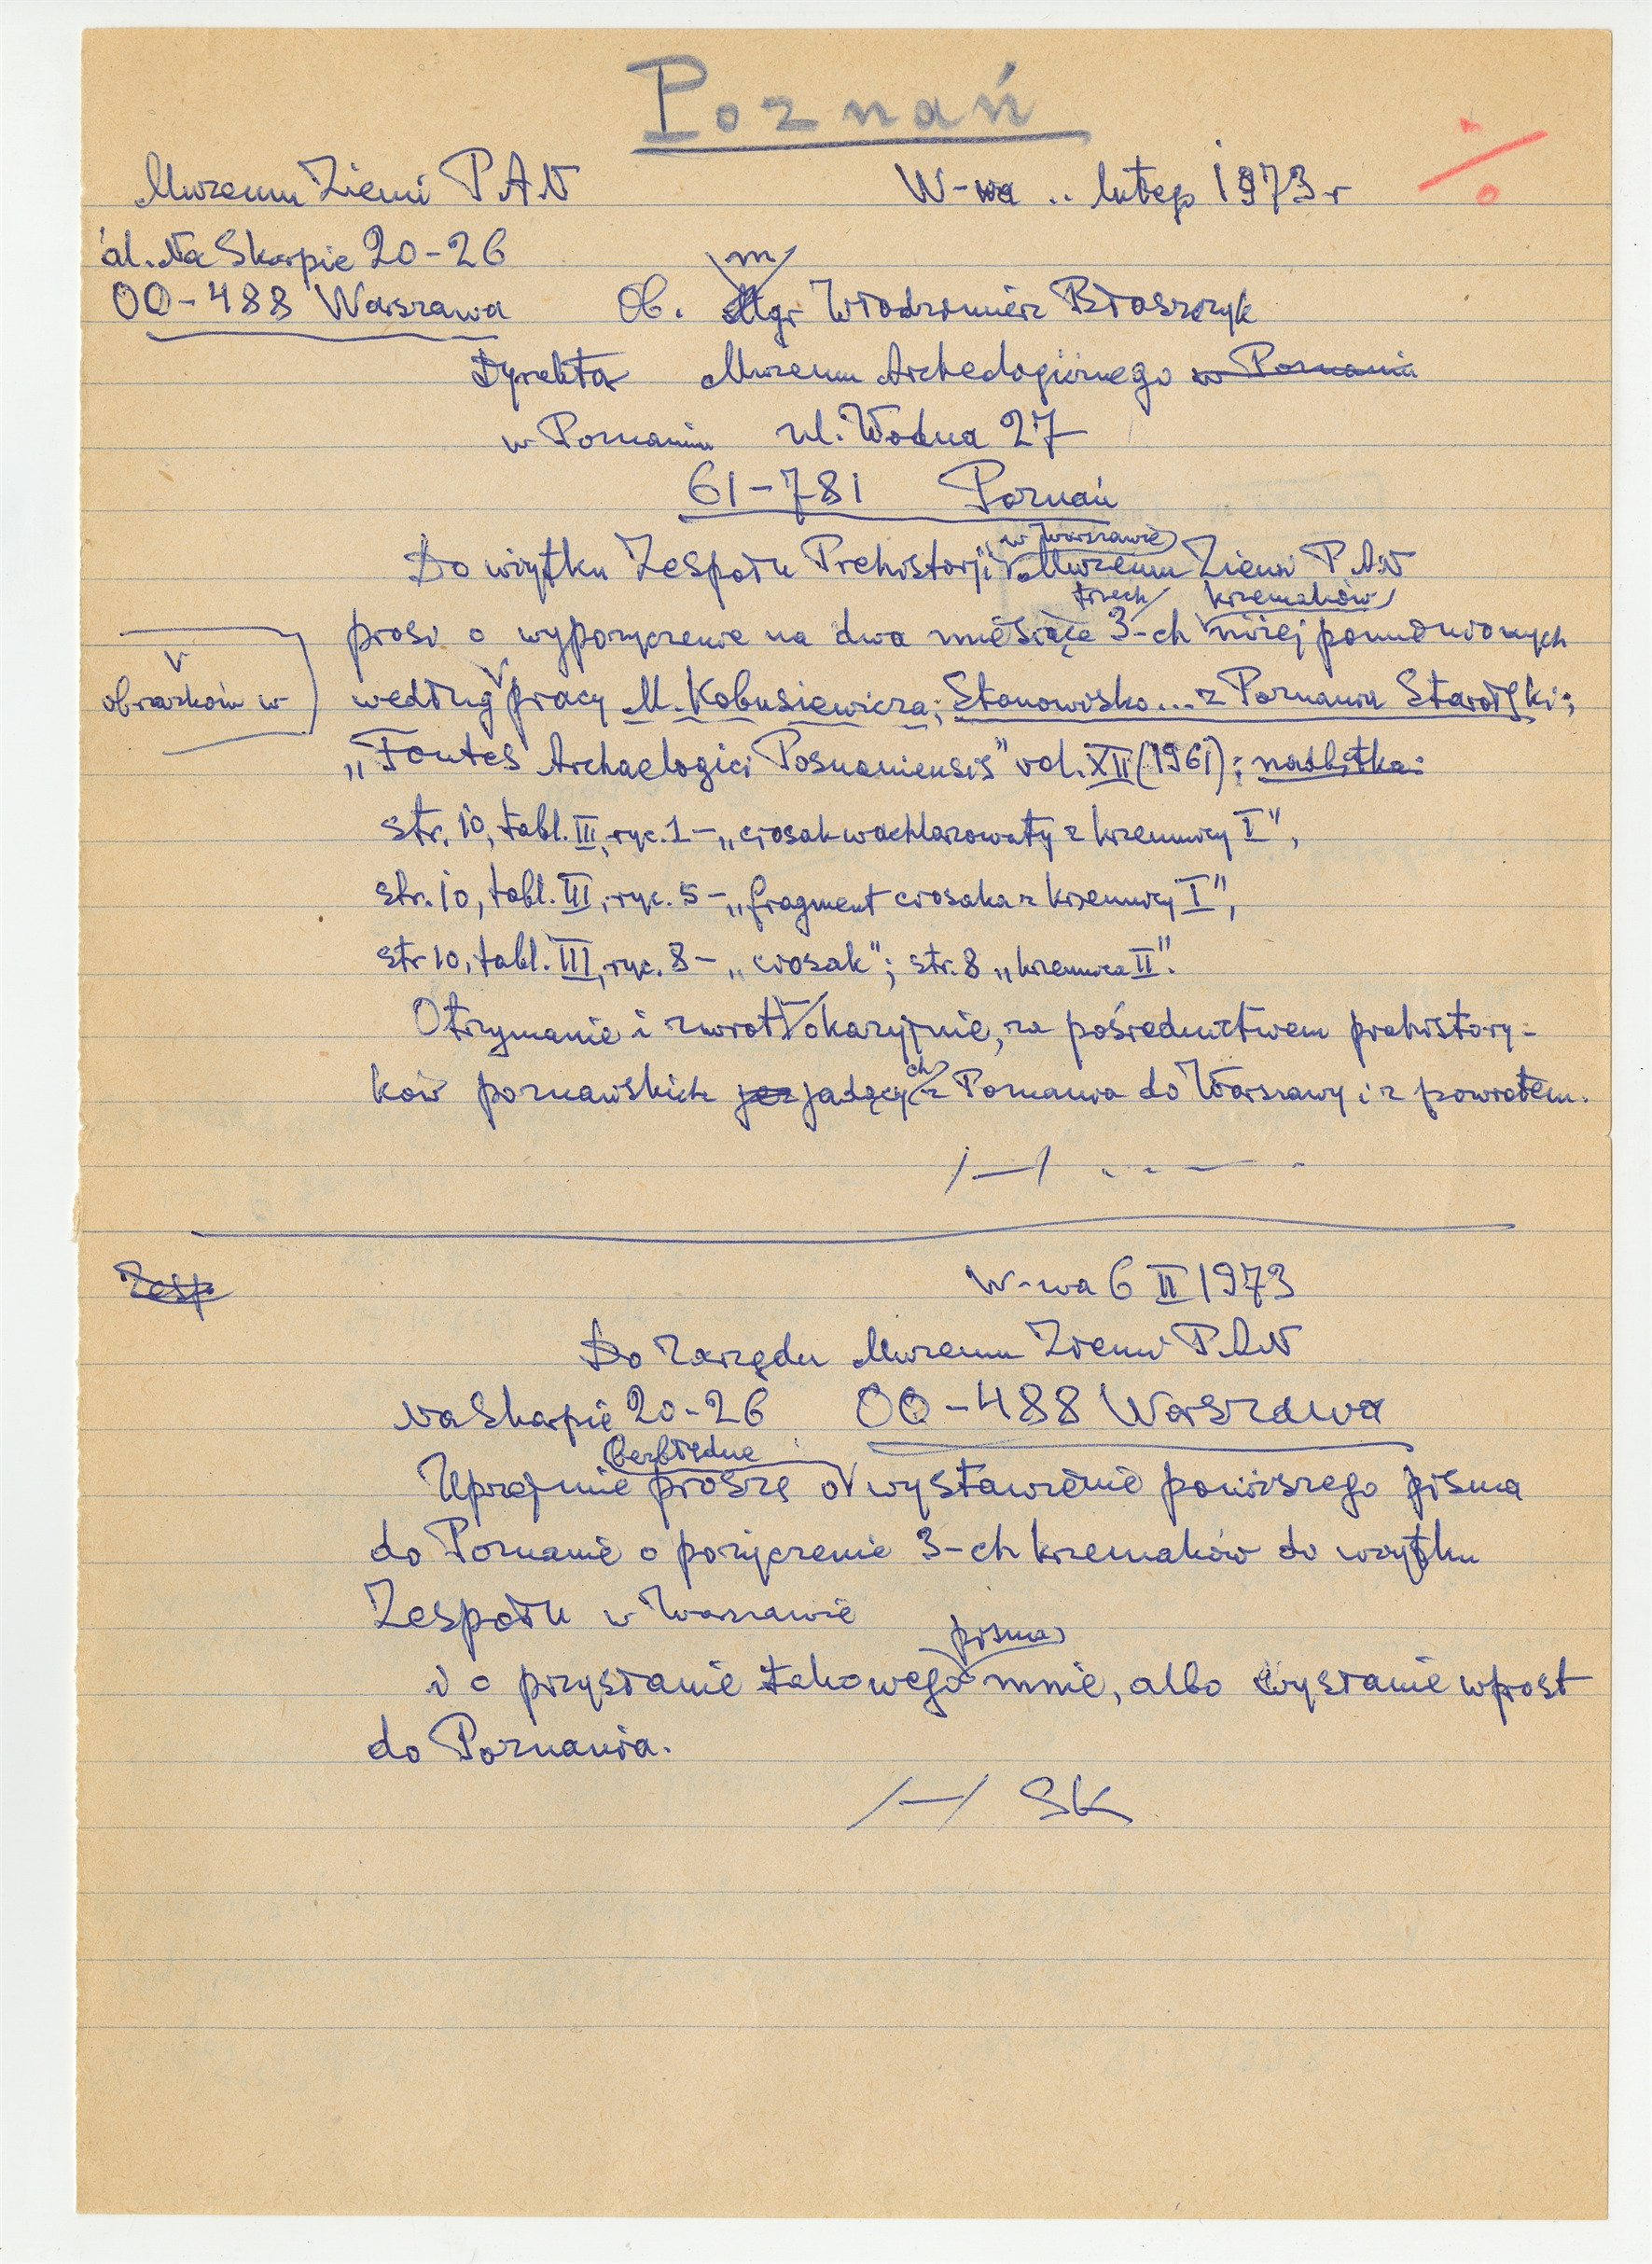 Poznań
Muzeum Ziemi P.A.N
W-wa .. lutego 1973 r
al. Na Skarpie 20-26
00-488 Warszawa
m
Ob. Mgr Włodzimierz Błaszczyk
Dyrektor Muzeum Archeologicznego w Poznaniu
w Poznaniu ul. Wodna 27
61-781 Poznań
w Warszawie
Do użytku Zespołu Prehistorji Muzeum Ziemi P.A.N
trzech krzemaków
prosi o wypożyczenie na dwa miesiące 3-ch niżej pomienionych
v
obrazków w
według pracy M. Kobusiewicza; Stanowisko... z Poznania Starołęki;
„Fontes Archaelogici Posnaniensis" vol. XII (1961); nadbitka:
str. 10, tabl. III, ryc. 1 – „ciosak wachlarzowaty z krzemnicy I",
str. 10, tabl. III, ryc. 5 – „fragment ciosaka z krzemnicy I",
str 10, tabl. III, ryc. 8 – „ciosak"; str. 8 „krzemnica II".
Otrzymanie i zwrot – okazyjnie, za pośrednictwem prehistory-
ch
ków poznańskich jez jadący z Poznania do Warszawy i z powrotem.
/—/ . . — .
Zesp.
W-wa 6 II 1973
Do Zarządu Muzeum Ziemi P.A.N
Na Skarpie 20-26 00-488 Warszawa
bezbłędne
Uprzejmie proszę o wystawienie powyższego pisma
do Poznania o pożyczenie 3-ch krzemaków do użytku
Zespołu w Warszawie
pisma
i o przysłanie takowego mnie, albo wysłanie wprost
do Poznania.
/—/ SK